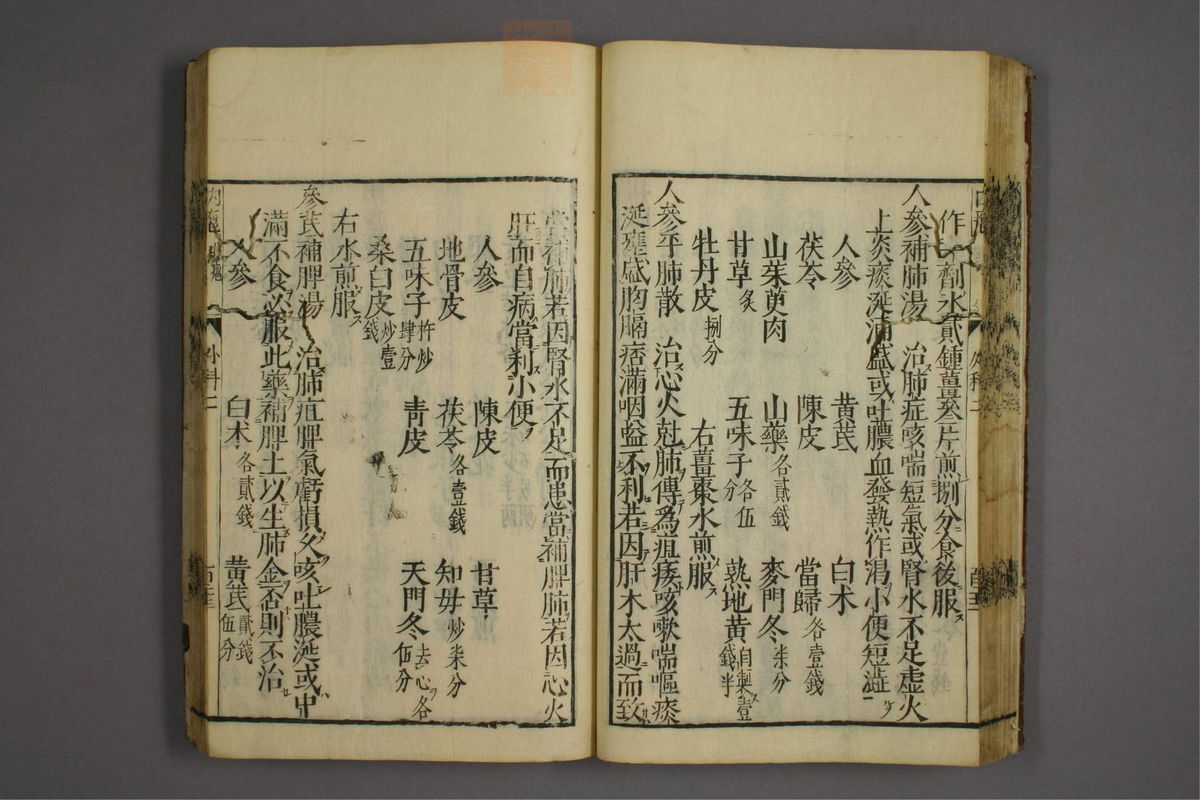 作一劑水貳鍾薑叁片煎捌分食後服
人參補肺湯 治肺症咳喘短氣或腎水不足虛火
上炎痰涎湧盛或吐膿血發熱作渴小便短澁
人參 黃芪 白木
茯苓 陳皮 當歸各壹錢
山茱萸肉 山藥各貳錢 麥門冬柒分
甘草炙 五味子各伍分 熟地黃自製壹錢半
牡丹皮捌分 右薑棗水煎服
人參平肺散 治心火尅肺傳爲疽痿咳嗽喘嘔痰
涎壅盛胸膈痞滿咽嗌不利若因肝木太過而致
當補肺若因腎水不足而患當補脾肺若因心火
肝而自病當利小便
人參 陳皮 甘草
地骨皮 茯苓各壹錢 知毋炒柒分
五味子杵炒肆分 靑皮 天門冬去心各伍分
桑白皮炒壹錢
右水煎服
參芪補脾湯 治肺疽脾氣虧損久咳吐膿涎或中
滿不食必服此藥補脾土以生肺金否則不治
人參 白木各貳錢 黃芪貳錢伍分